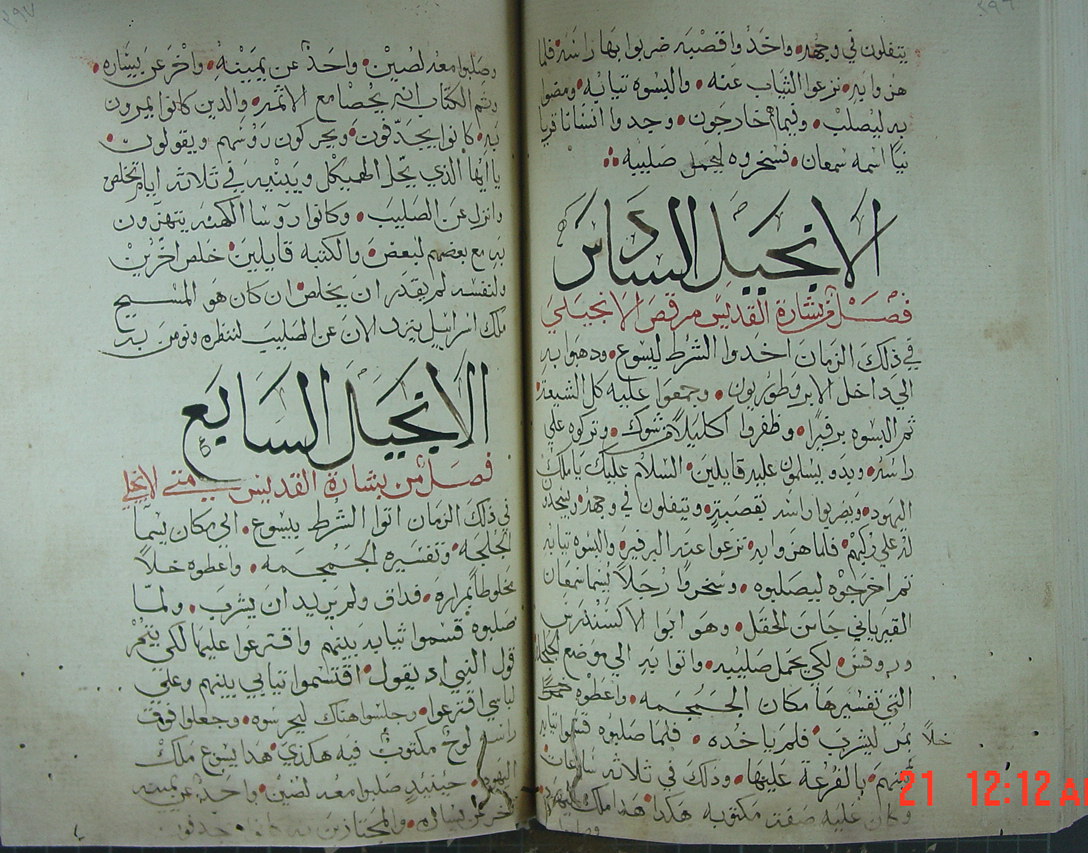 ٣٩٦
يتفلون في وجهه واخذوا قصبه ضربوا بها راسه فلما
هزوا به نزعوا الثياب عنه والبسوه تيابه ومضوا
به ليصلب وفيما خارجون وجدوا انسانا قريا
نيا اسمه سمعان فسخروه ليحمل صليبه
الانجيل السادس
فصل من بشارة القديس مرقص الانجيلي
في ذلك الزمان اخدوا الشرط ليسوع ودهبوا به
الي داخل الابروطوريون وجمعوا عليه كل الشيعة
تم البسوه برفيرا وظفروا اكليلا من شوك وتركوه علي
راسه وبدو يسلمون عليه قايلين السلام عليك يا ملك
اليهود ويضربوا راسه بقصبة ويتفلون في وجهه ويسجدون
له علي ركبهم فلما هزوا به نزعوا عنه البرفير والبسوه تيابه
تم اخرجوه ليصلبوه وسخروا رجلا يسما سمعان
القيرياني جاي من الحقل وهو ابوا الاكسندرس
وروفس لكي يحمل صليبه واتوا به الي موضع الجلجلة
التي تفسيرها مكان الجمجمه واعطوه خمرا
بمر ليشرب فلم ياخده فلما صلبوه قسموا تيابه
خلا
بينهم بالقرعة عليها ودلك في ثلاثه ساعات
وكان عليه صفة مكتوبه هكدا هدا ملك اليهود
وصلبوا
٣٩٧
وصلبوا معه لصين واحد عن يمينه واخر عن يساره
وتم الكتاب انه يحصا مع الاتمه والدين كانوا يمرون
به كانوا يجدفون ويحركون روسهم ويقولون
يا ايها الذي يحل الهيكل ويبنيه في ثلاثه ايام تخلص
وانزل عن الصليب وكانوا روسا الكهنه يتهزون
به مع بعضهم لبعض والكتبه قايلين خلص اخرين
ولنفسه لم يقدر ان يخلص ان كان هو المسيح
ملك اسراييل ينزل الان عن الصليب لننظره ونومن به
الانجيل السابع
فصل من بشارة القديس متي الانجيلي
في ذلك الزمان اتوا الشرط بيسوع الي مكان يسما
الجلجله وتفسيره الجمجمه واعطوه خلا
مخلوطا بمراره فداق ولم يريد ان يشرب ولما
صلبوه قسموا تيابه بينهم واقترعوا عليها لكي يتم
قول النبي اد يقول اقتسموا تيابي بينهم وعلي
لباسي اقترعوا وجلسوا هناك ليحرسوه وجعلوا فوق
راسه لوح مكتوب فيه هكذي هدا يسوع ملك
اليهود حينيد صلبوا معه لصين واحد عن يمينه
واخر عن يساره والمجتازين به كانوا يجدفون
21 12:12 AM